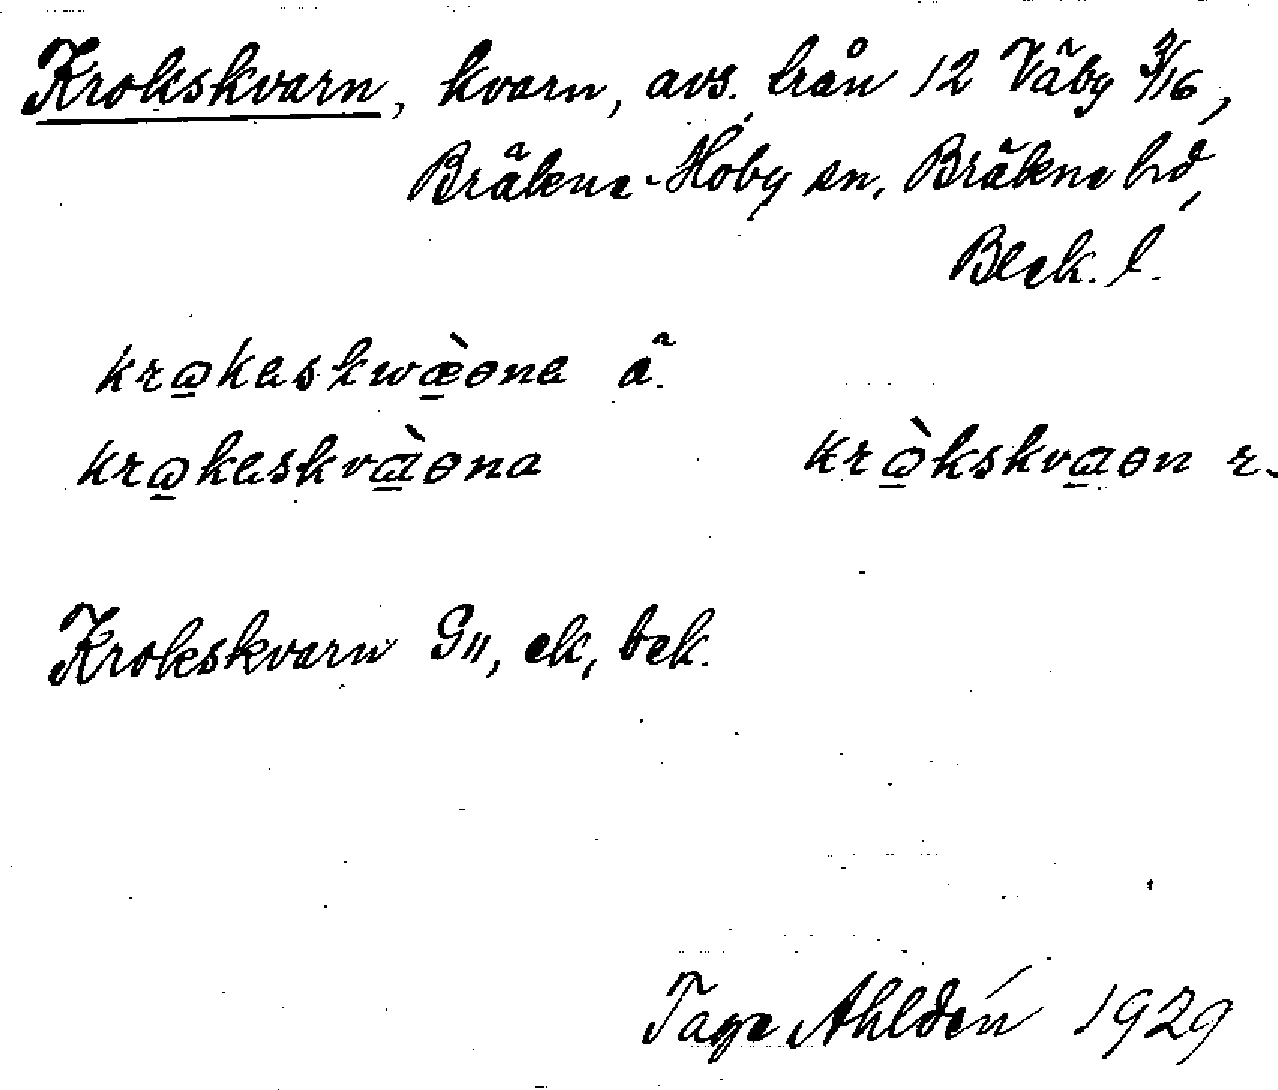 Krokskvarn, kvarn, avs. från 12 Väby 3/16,
Bräkne-Hoby sn, Bräkne hd,
Blek. l.
krωkaskwæ̀ɵna ä.
krωkaskvɑ̀ɵna krὼkskvɑɵn r.
Krokskvarn G11, ek, bek.
Tage Ahldén 1929